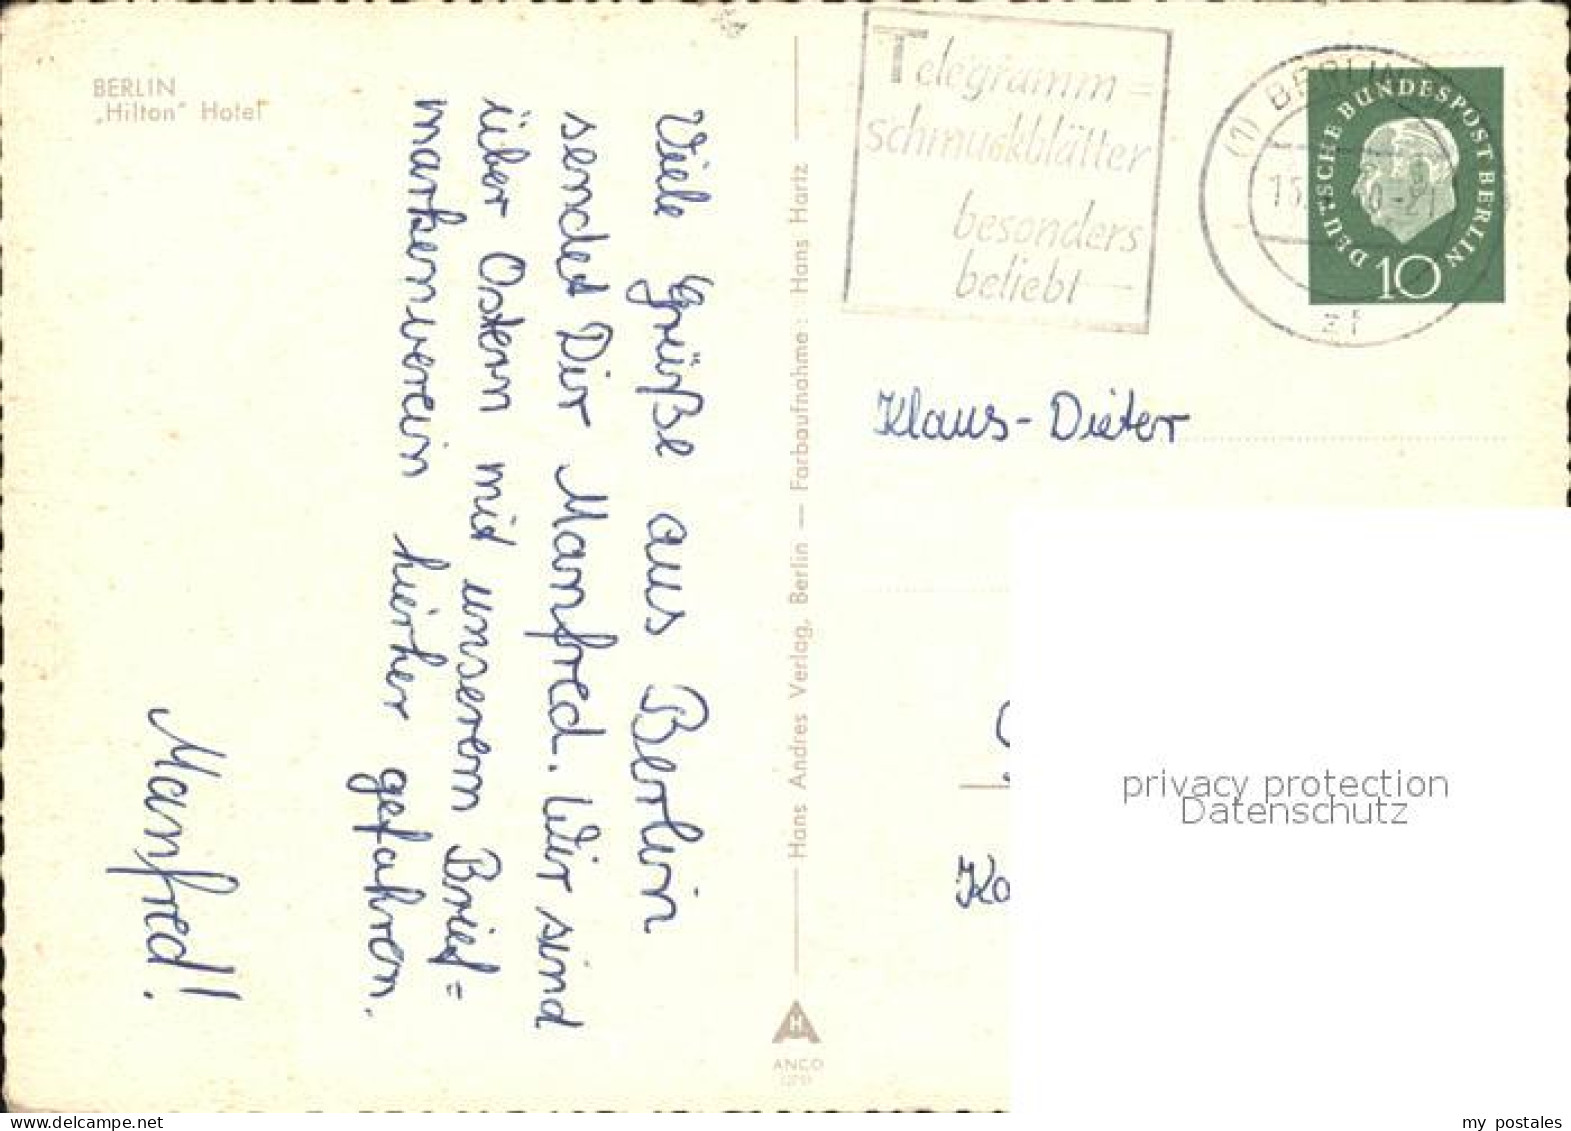 BERLIN
„Hilton" Hotel
Viele Grüße aus Berlin
sendet Dir Manfred. Wir sind
über Ostern mit unserem Brief=
markenverein hierher gefahren.
Manfred!
Hans Andres Verlag, Berlin — Farbaufnahme: Hans Hartz
ANCO
Telegramm=
schmuckblätter
besonders
beliebt
(1) BERLIN
DEUTSCHE BUNDESPOST BERLIN
10
Klaus-Dieter
privacy protection
Datenschutz
www.delcampe.net
my_postales